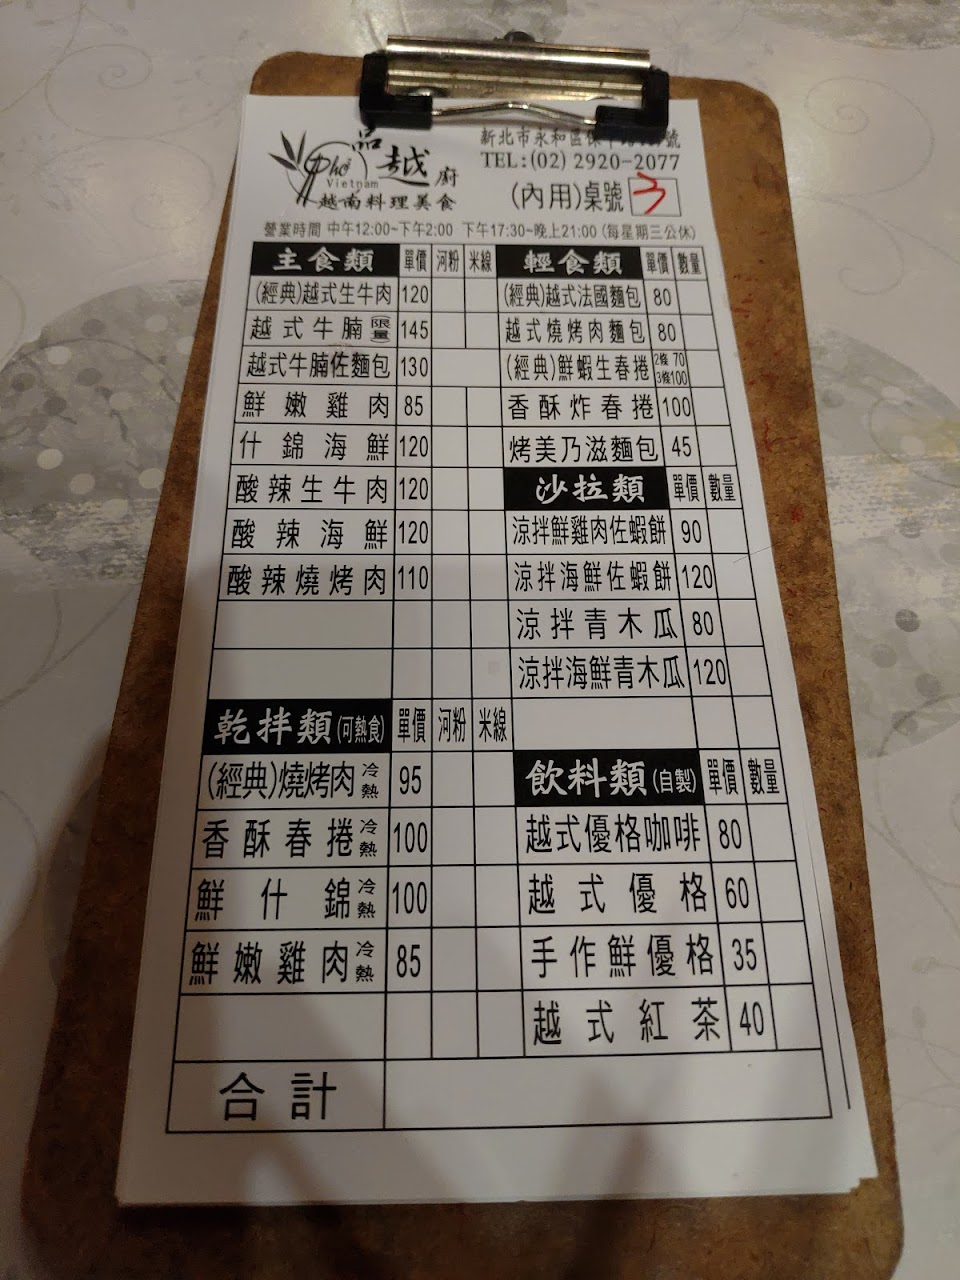 品越廚
Pho
Vietnam
越南料理美食
新北市永和區保
TEL:(02) 2920-2077
(內用)桌號 3
營業時間 中午12:00~下午2:00 下午17:30~晚上21:00 (每星期三公休)
主食類 單價 河粉 米線
(經典)越式生牛肉 120
越式牛腩(限量) 145
越式牛腩佐麵包 130
鮮嫩雞肉 85
什錦海鮮 120
酸辣生牛肉 120
酸辣海鮮 120
酸辣燒烤肉 110
乾拌類(可熱食) 單價 河粉 米線
(經典)燒烤肉 冷熱 95
香酥春捲 冷熱 100
鮮什錦 冷熱 100
鮮嫩雞肉 冷熱 85
輕食類 單價 數量
(經典)越式法國麵包 80
越式燒烤肉麵包 80
(經典)鮮蝦生春捲 2條 70 3條100
香酥炸春捲 100
烤美乃滋麵包 45
沙拉類 單價 數量
涼拌鮮雞肉佐蝦餅 90
涼拌海鮮佐蝦餅 120
涼拌青木瓜 80
涼拌海鮮青木瓜 120
飲料類(自製) 單價 數量
越式優格咖啡 80
越式優格 60
手作鮮優格 35
越式紅茶 40
合計